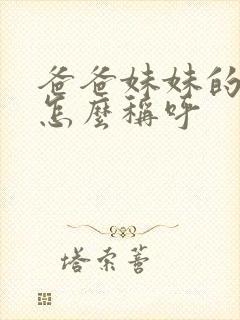 爸爸妹妹的
怎麼稱呼
塔索薈